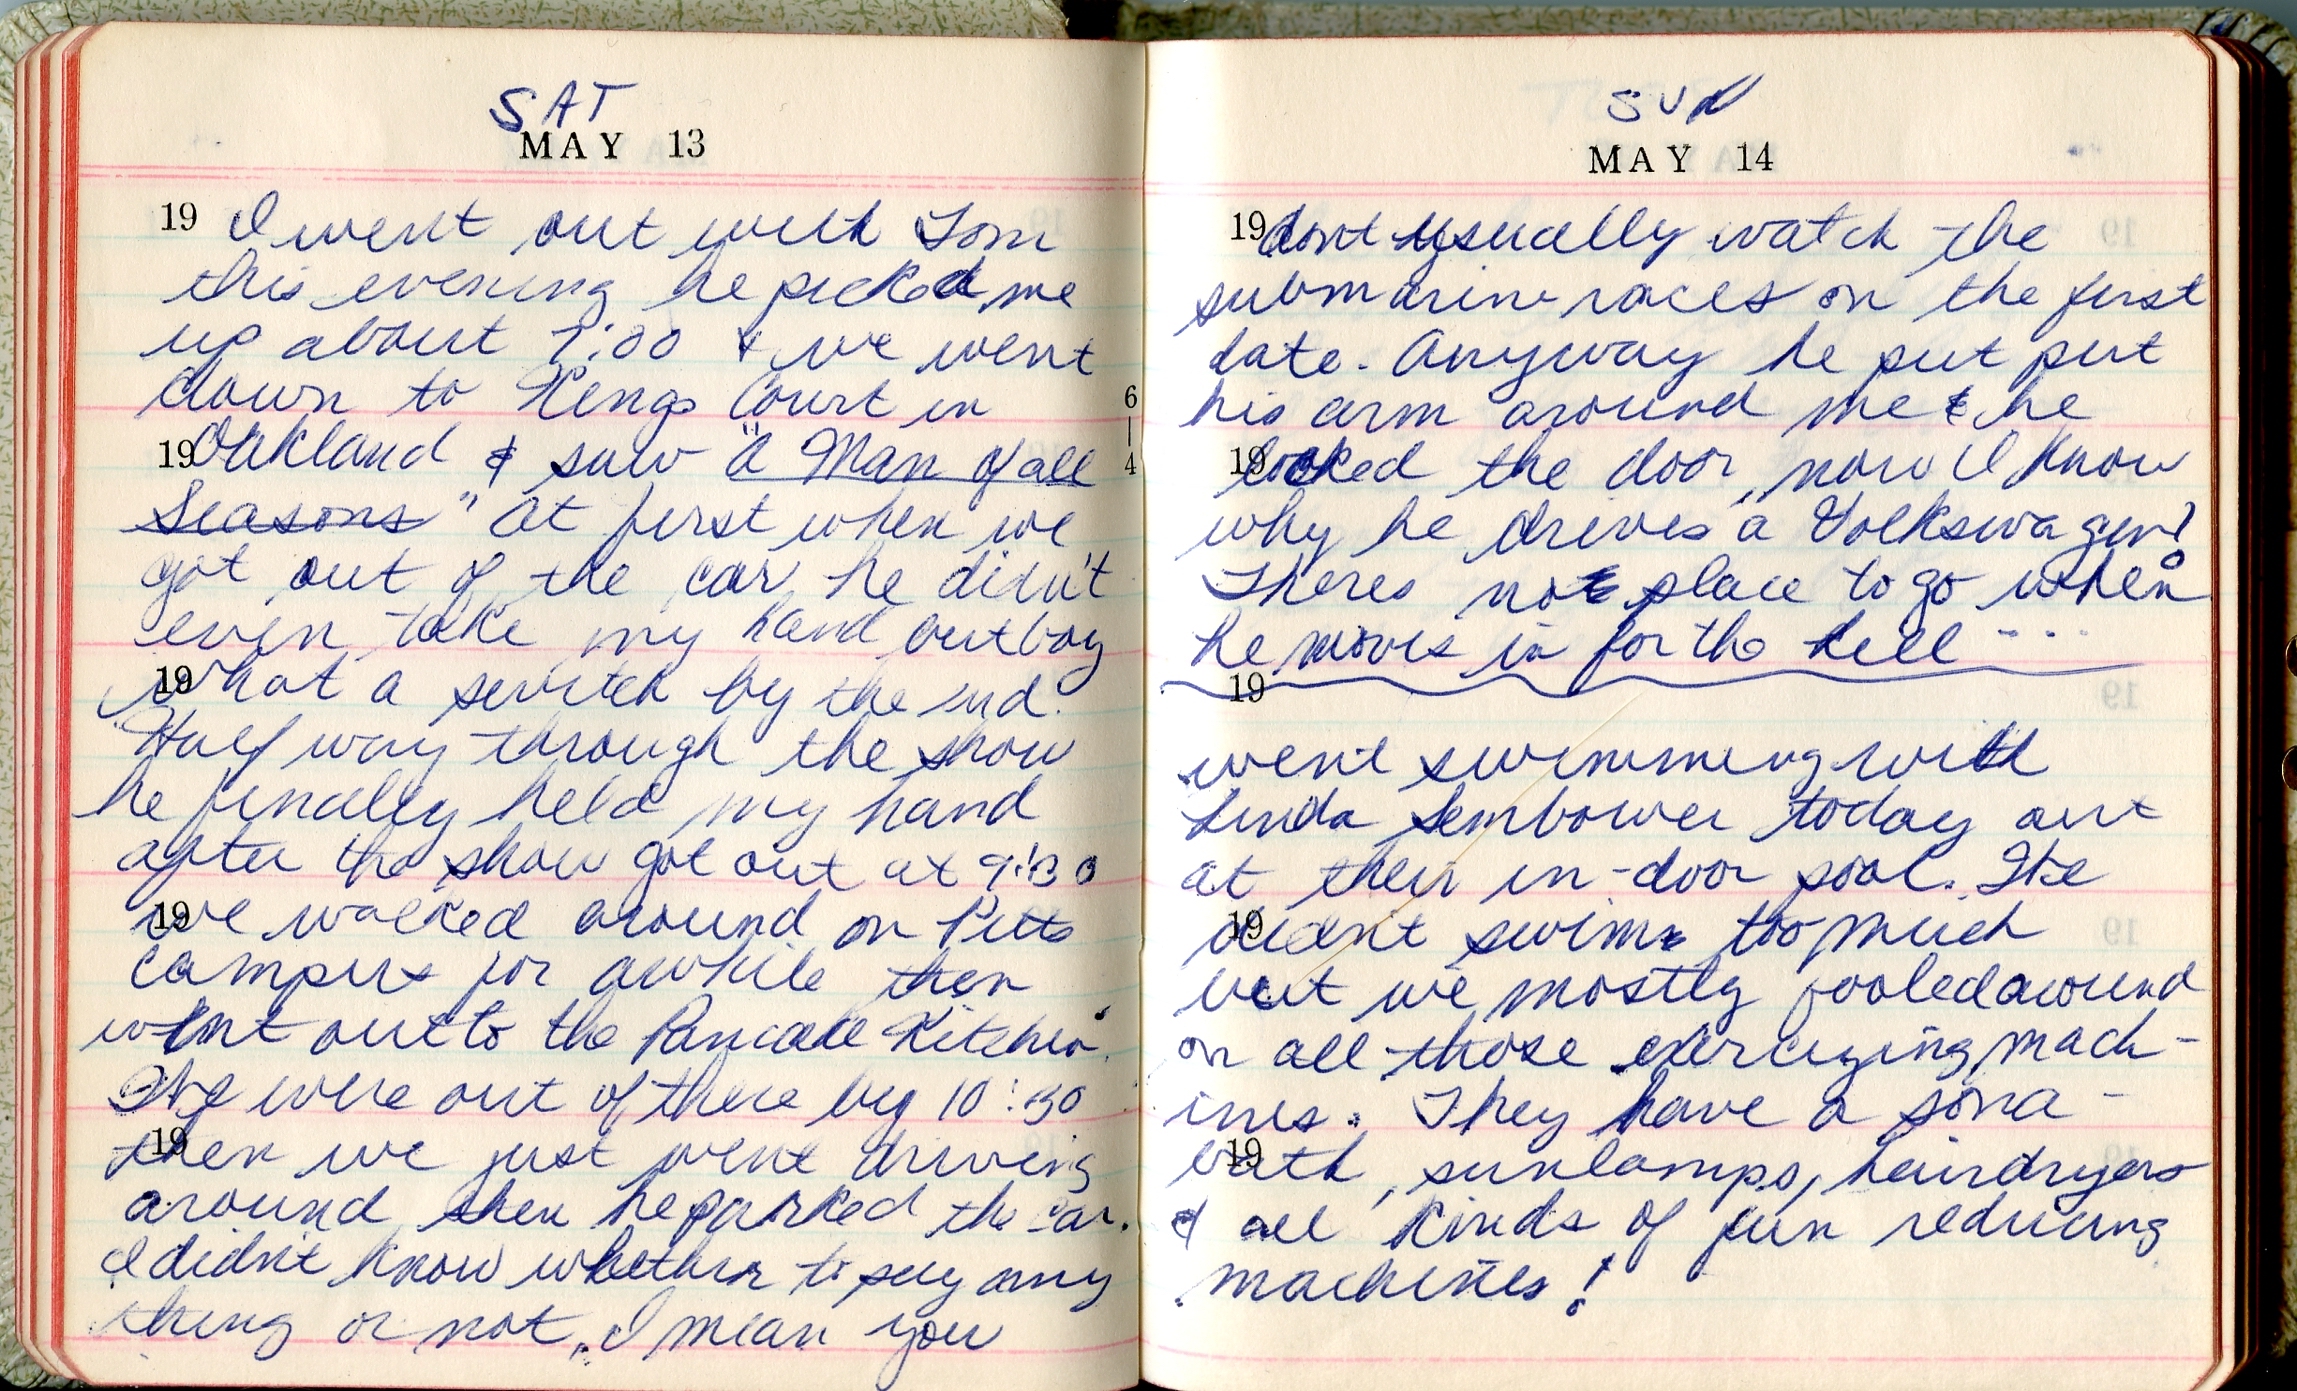 SAT
MAY 13
19 I went out with Tom
this evening he picked me
up about 7:00 & we went
down to Kings Court in
19 Oakland & saw "A Man of all
Seasons" At first when we
got out of the car he didn't
even take my hand but boy
19 what a switch by the end.
Half way through the show
he finally held my hand
after the show got out at 9:30
19 we walked around on Pitts
campus for awhile then
went out to the Pancake Kitchen.
We were out of there by 10:30
19 then we just went driving
around then he parked the car.
I didn't know whether to say any
thing or not, I mean you
6
|
4
SUN
MAY 14
19 dont usually watch the
submarine races on the first
date. Anyway he put put
his arm around me & he
19 locked the door, now I know
why he drives a Volkswagen!
Theres no place to go when
he moves in for the kill ...
19
went swimming with
Linda Sembower today out
at their in-door pool. We
19 didnt swim too much
but we mostly fooled around
on all those exercizing mach-
ines. They have a sona-
19 bath, sunlamps, hairdryers
& all kinds of fun reducing
machines!